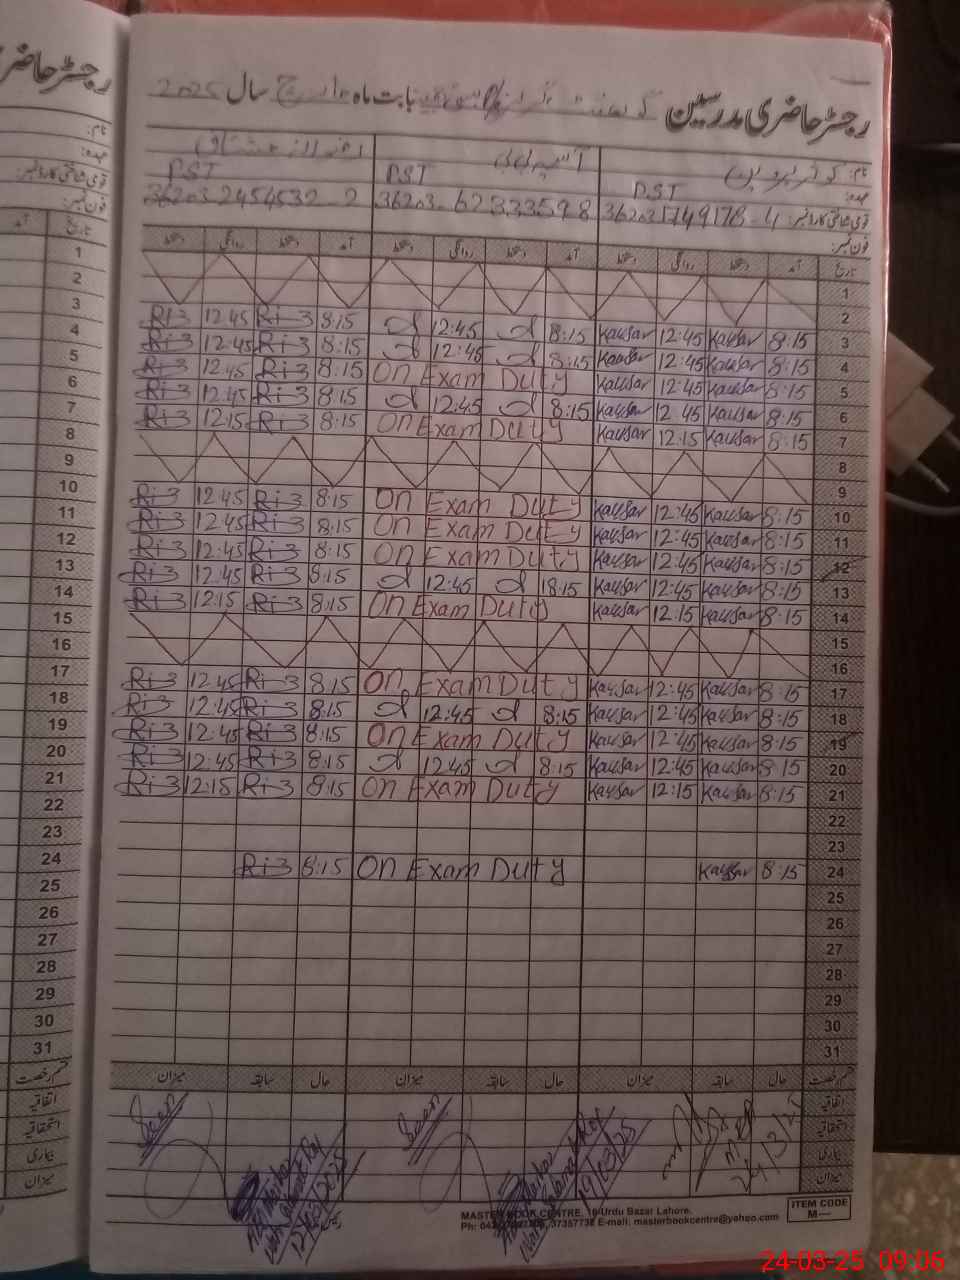 رجسٹر حاضری مدرسین بابت ماہ مارچ سال 2025
نام: کوثر پروین آسیہ بی بی
عہدہ: PST PST PST
قومی شناختی کارڈ نمبر: 36203 62333598 36203 2454532-2
فون نمبر:
تاریخ آمد دستخط روانگی دستخط آمد دستخط روانگی دستخط آمد دستخط روانگی دستخط
1
2
3 8:15 Kausar 12:45 Kausar 8:15 12:45 8:15 Ri3 12:45 Ri3
4 8:15 Kausar 12:45 Kausar 8:15 12:45 8:15 Ri3 12:45 Ri3
5 8:15 Kausar 12:45 Kausar On Exam Duty 8:15 Ri3 12:45 Ri3
6 8:15 Kausar 12:45 Kausar 8:15 12:45 8:15 Ri3 12:45 Ri3
7 8:15 Kausar 12:15 Kausar On Exam Duty 8:15 Ri3 12:15 Ri3
8
9
10 8:15 Kausar 12:45 Kausar On Exam Duty 8:15 Ri3 12:45 Ri3
11 8:15 Kausar 12:45 Kausar On Exam Duty 8:15 Ri3 12:45 Ri3
12 8:15 Kausar 12:45 Kausar On Exam Duty 8:15 Ri3 12:45 Ri3
13 8:15 Kausar 12:45 Kausar 18:15 12:45 8:15 Ri3 12:45 Ri3
14 8:15 Kausar 12:15 Kausar On Exam Duty 8:15 Ri3 12:15 Ri3
15
16
17 8:15 Kausar 12:45 Kausar On Exam Duty 8:15 Ri3 12:45 Ri3
18 8:15 Kausar 12:45 Kausar 8:15 12:45 8:15 Ri3 12:45 Ri3
19 8:15 Kausar 12:45 Kausar On Exam Duty 8:15 Ri3 12:45 Ri3
20 8:15 Kausar 12:45 Kausar 8:15 12:45 8:15 Ri3 12:45 Ri3
21 8:15 Kausar 12:15 Kausar On Exam Duty 8:15 Ri3 12:15 Ri3
22
23
24 8:15 Kausar On Exam Duty 8:15 Ri3
25
26
27
28
29
30
31
قسم رخصت حال سابقہ میزان حال سابقہ میزان حال سابقہ میزان
اتفاقیہ
استحقاقیہ
بیماری
میزان
Seen
Seen
12/03/2025
19/03/25
24/3/25
MASTER BOOK CENTRE, 16-Urdu Bazar Lahore.
37357738 E-mail: masterbookcentre@yahoo.com
ITEM CODE
M—
رجسٹر حاضری
نام:
عہدہ:
قومی شناختی کارڈ نمبر:
فون نمبر:
تاریخ آمد
1
2
3
4
5
6
7
8
9
10
11
12
13
14
15
16
17
18
19
20
21
22
23
24
25
26
27
28
29
30
31
قسم رخصت
اتفاقیہ
استحقاقیہ
بیماری
میزان
24-03-25 09:06